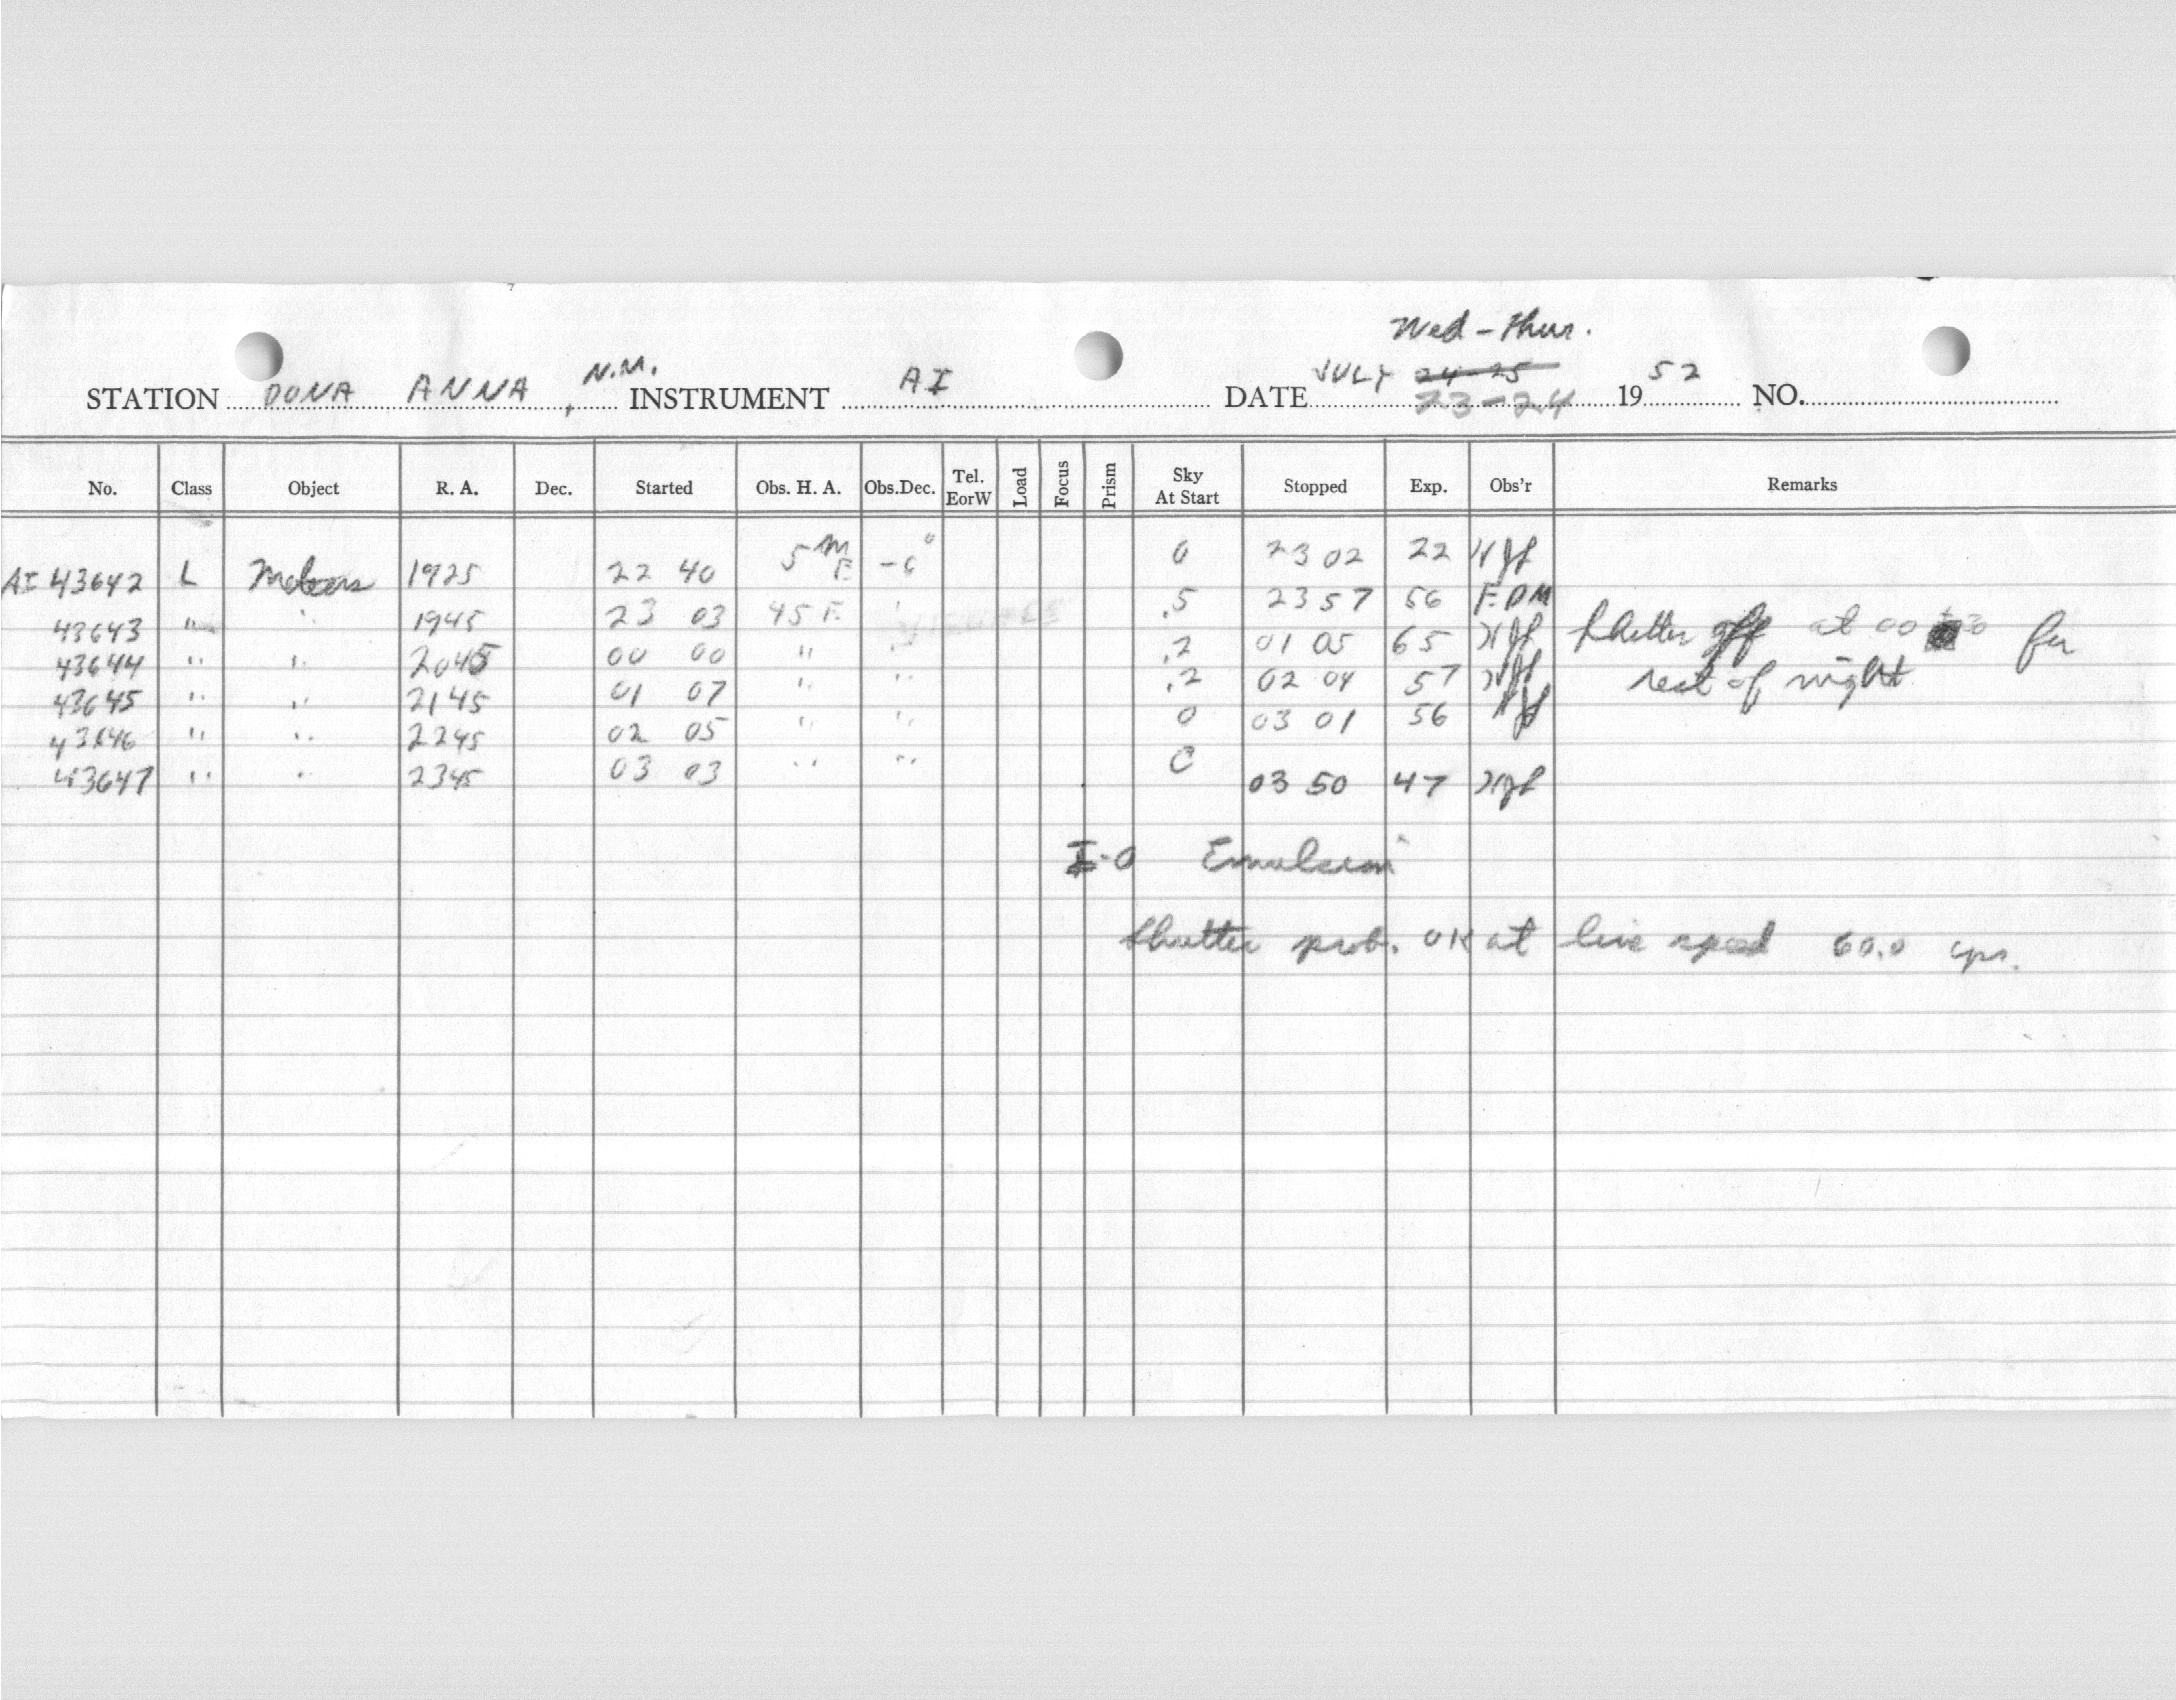 Wed - Thur.
STATION DONA ANNA, N.M. INSTRUMENT AI DATE JULY 24-25 23-24 1952 NO.
No. Class Object R. A. Dec. Started Obs. H. A. Obs.Dec. Tel. EorW Load Focus Prism Sky At Start Stopped Exp. Obs'r Remarks
AI 43642 L Meteors 1925 22 40 5 m E 0 23 02 22
43643 " " 1945 23 03 45 E " .5 23 57 56 EDM
43644 " " 2045 00 00 " " .2 01 05 65 Shutter off at 00 for
43645 " " 2145 01 07 " " .2 02 04 57 rest of night
43646 " " 2245 02 05 " " 0 03 01 56
43647 " " 2345 03 03 " " 03 50 47
I-O Emulsion
Shutter prob. OK at line speed 60.0 cps.